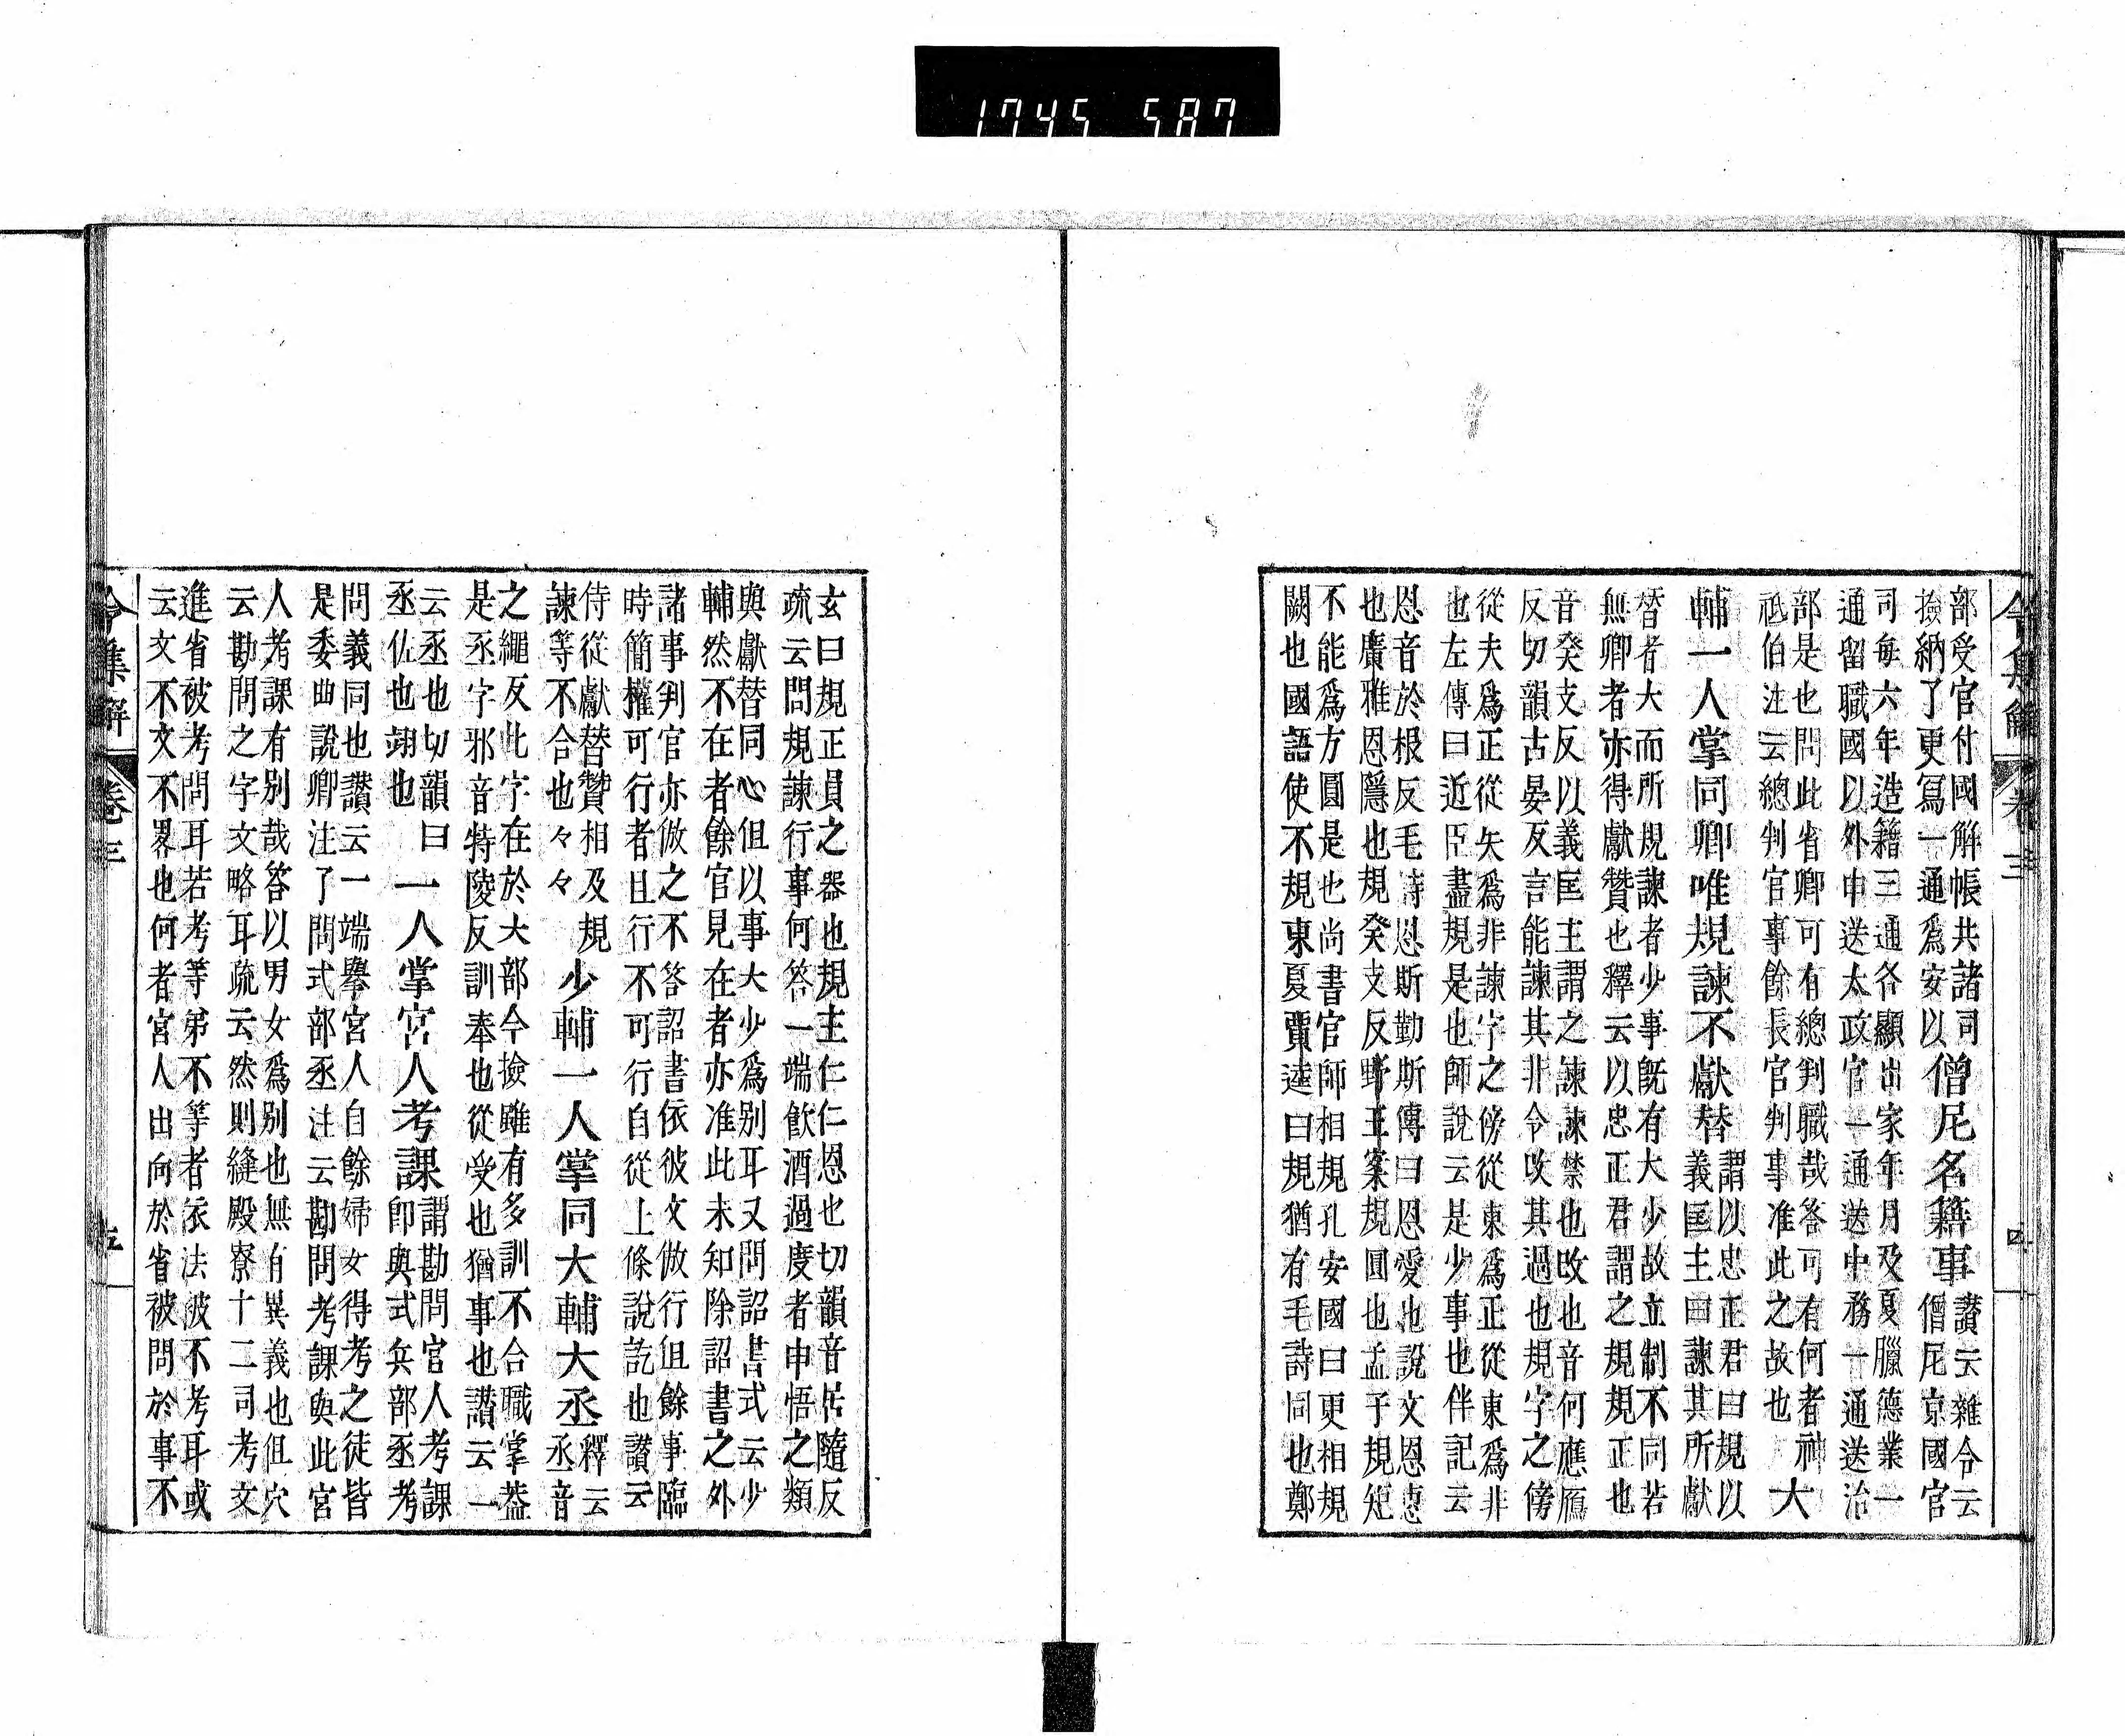 令集解 卷三 四
部受官付國解帳共諸司
撿納了更寫一通爲安以
僧尼名籍事
讃云雜令云
僧尼京國官
司每六年造籍三通各顯出家年月及夏臘德業一
通留職國以外申送太政官一通送中務一通送治
部是也問此省卿可有總判職哉答可有何者神
祗伯注云總判官事餘長官判事准此之故也
大
輔一人掌同卿唯規諫不獻替
謂以忠正君曰規以
義匡主曰諫其所獻
替者大而所規諫者少事既有大少故立制不同若
無卿者亦得獻贊也釋云以忠正君謂之規規正也
音癸支反以義匡主謂之諫諫禁也攺也音何應鴈
反切韻古晏反言能諫其非令攺其過也規字之傍
從夫爲正從矢爲非諫字之傍從柬爲正從東爲非
也左傳曰近臣盡規是也師說云是少事也伴記云
恩音於根反毛詩恩斯勤斯傳曰恩愛也說文恩惠
也廣雅恩隱也規癸支反野王案規圓也孟子規矩
不能爲方圓是也尚書官師相規孔安國曰更相規
闕也國語使不規東夏賈逵曰規猶有毛詩同也鄭
玄曰規正員之器也規主仁仁恩也切韻音居隨反
疏云問規諫行事何答一端飲酒過度者申悟之類
與獻替同心但以事大少爲別耳又問詔書式云少
輔然不在者餘官見在者亦准此未知除詔書之外
諸事判官亦倣之不答詔書依彼文倣行但餘事臨
時簡擢可行行者且行不可行自從上條說訖也讃云
侍從獻替贊相及規
諫等不合也々々々
少輔一人掌同大輔大丞
釋云
丞音
之繩反此字在於大部今撿雖有多訓不合職掌葢
是丞字邪音特陵反訓奉也從受也猶事也讃云一
云丞也切韻曰
丞佐也翊也
一人掌宮人考課
謂勘問官人考課
即與式兵部丞考
問義同也讃云一端擧宮人自餘婦女得考之徒皆
是委曲說卿注了問式部丞注云勘問考課與此宮
人考課有別哉答以男女爲別也無有異義也但宍
云勘問之字文略耳疏云然則縫殿寮十二司考文
進省被考問耳若考等弟不等者依法被不考耳或
云文不文不畧也何者宮人出向於省被問於事不
令集解 卷三 五